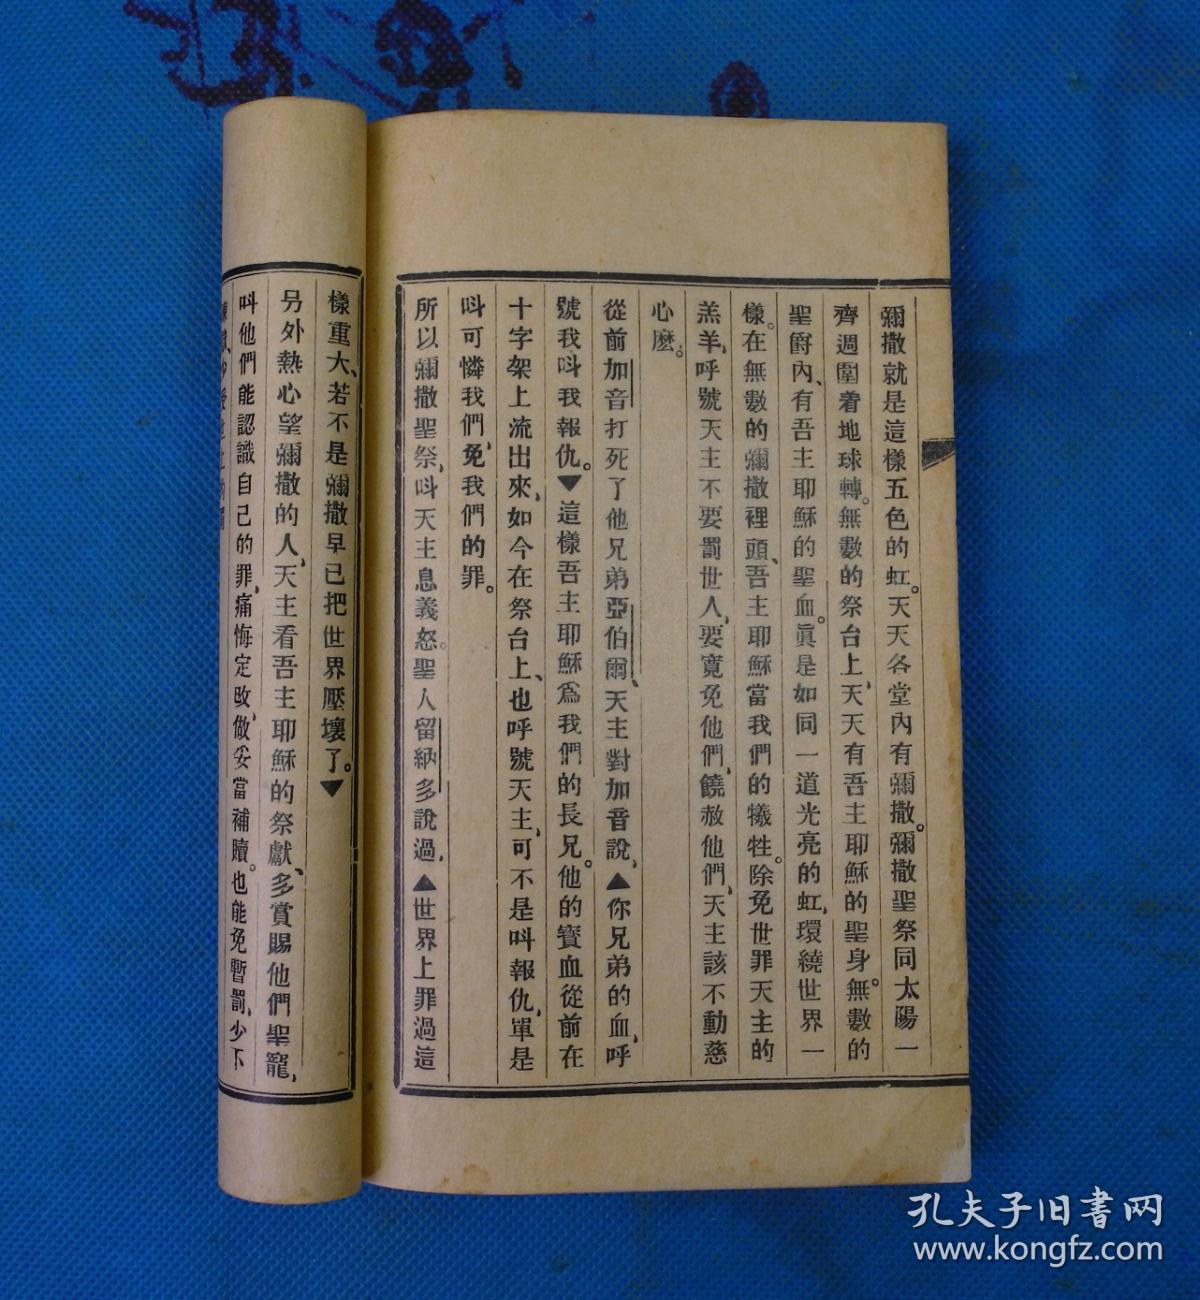 彌撒就是這樣五色的虹。天天各堂內有彌撒。彌撒聖祭同太陽一
齊週圍着地球轉。無數的祭台上、天天有吾主耶穌的聖身。無數的
聖爵內、有吾主耶穌的聖血。眞是如同一道光亮的虹、環繞世界一
樣。在無數的彌撒裡頭、吾主耶穌當我們的犧牲。除免世罪天主的
羔羊、呼號天主不要罰世人、要寬免他們、饒赦他們、天主該不動慈
心麽。
從前加音打死了他兄弟亞伯爾、天主對加音說、▲你兄弟的血、呼
號我呌我報仇。▼這樣吾主耶穌爲我們的長兄。他的寳血從前在
十字架上流出來、如今在祭台上、也呼號天主、可不是呌報仇、單是
呌可憐我們、免我們的罪。
所以彌撒聖祭、呌天主息義怒。聖人留納多說過、▲世界上罪過這
樣重大、若不是彌撒早已把世界壓壞了。▼
另外熱心望彌撒的人、天主看吾主耶穌的祭獻、多賞賜他們聖寵、
呌他們能認識自己的罪、痛悔定改、做妥當補贖。也能免暫罰、少下
孔夫子旧书网
www.kongfz.com